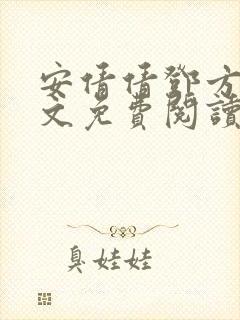 安倩倩鄧方
文免費閱讀
臭娃娃